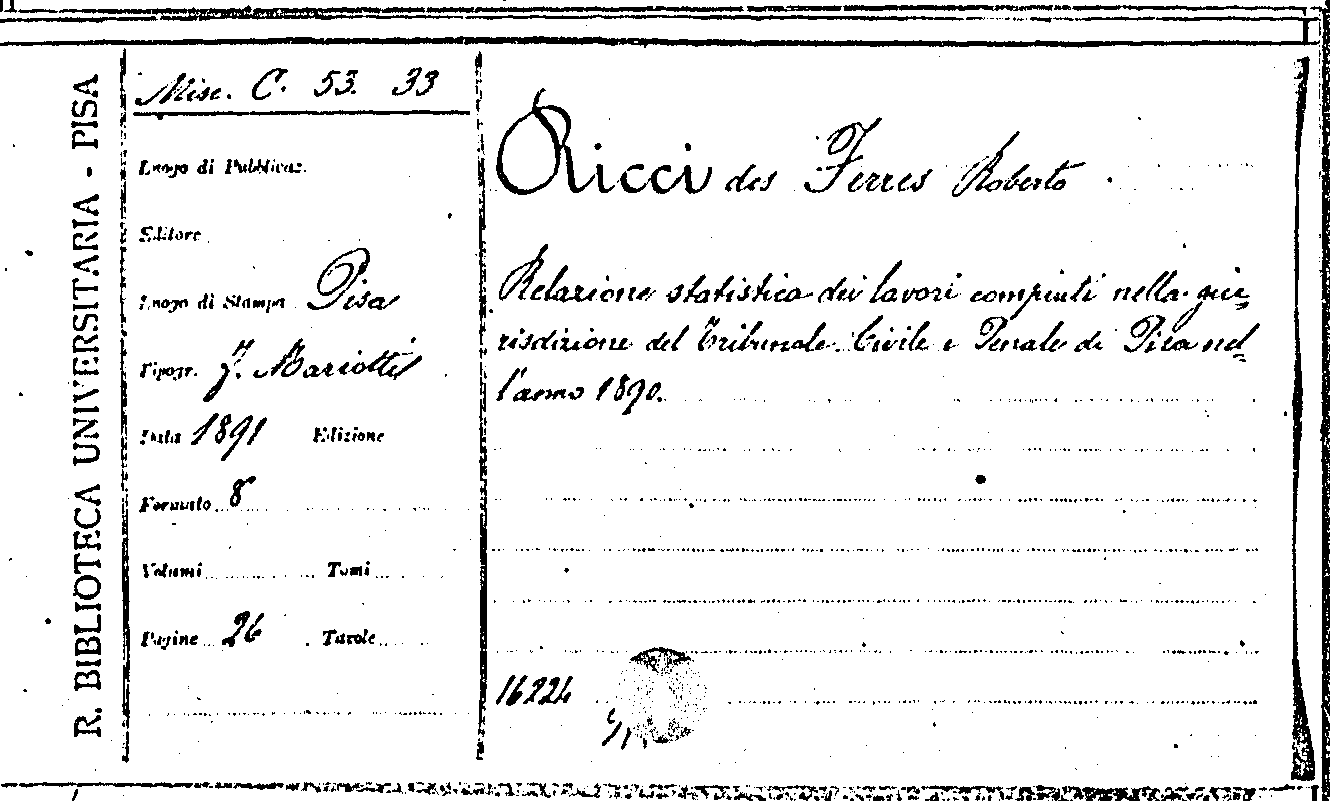 R. BIBLIOTECA UNIVERSITARIA - PISA
Misc. C. 53. 33
Luogo di Pubblicaz.
Editore
Luogo di Stampa Pisa
Tipogr. F. Mariotti
Data 1891 Edizione
Formato 8
Volumi Tomi
Pagine 26 Tavole
Ricci des Ferres Roberto
Relazione statistica dei lavori compiuti nella giu=
risdizione del Tribunale Civile e Penale di Pisa nel=
l'anno 1890.
16224